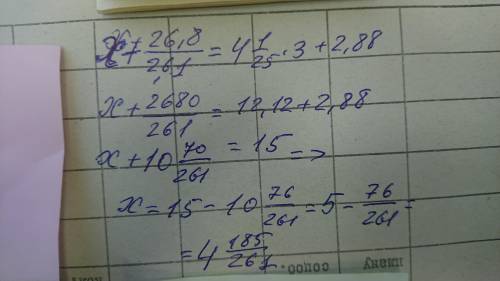 x + 26,8/261 = 4 1/25 · 3 + 2,88
x + 2680/261 = 12,12 + 2,88
x + 10 70/261 = 15 =>
x = 15 - 10 76/261 = 5 - 76/261 =
= 4 185/261